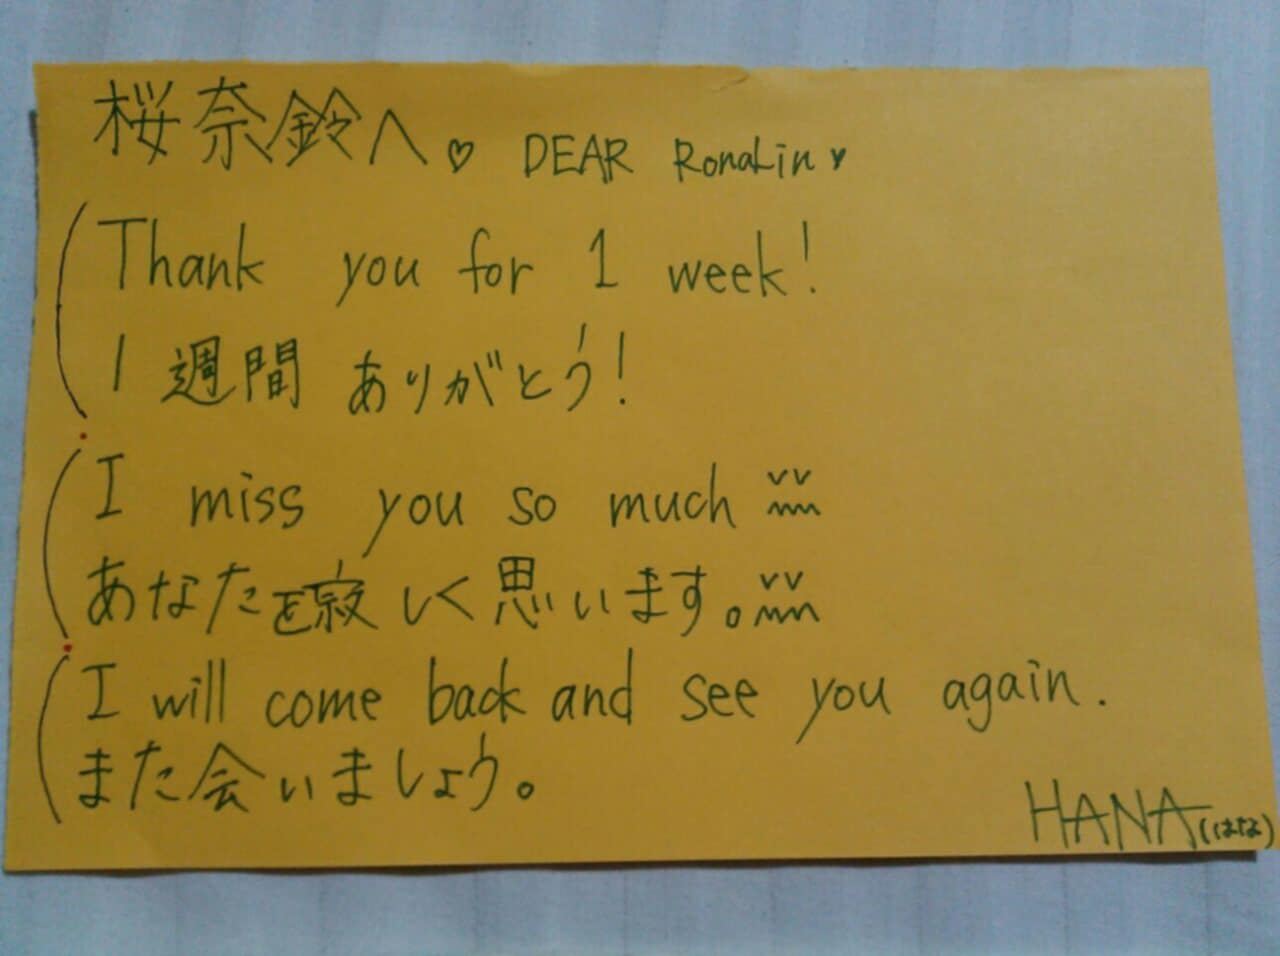 桜奈鈴へ♡ DEAR Ronalin♥
Thank you for 1 week!
1週間ありがとう!
I miss you so much
あなたを寂しく思います。
I will come back and see you again.
また会いましょう。
HANA(はな)